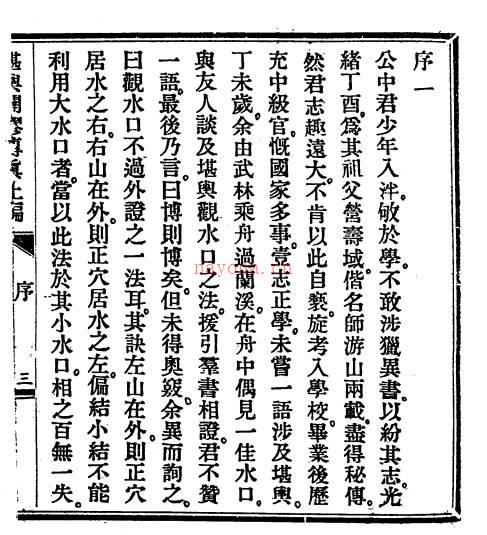 序一
公中君少年入泮。敏於學。不敢涉獵異書。以紛其志。光
緒丁酉。爲其祖父營壽域。偕名師游山兩載。盡得秘傳。
然君志趣遠大。不肯以此自褻。旋考入學校。畢業後。歷
充中級官。慨國家多事。壹志正學。未嘗一語涉及堪輿。
丁未歲。余由武林乘舟過蘭溪。在舟中偶見一佳水口。
與友人談及堪輿觀水口之法。援引羣書相證。君不贊
一語。最後乃言曰。博則博矣。但未得奧窽。余異而詢之。
曰觀水口不過外證之一法耳。其訣左山在外。則正穴
居水之右。右山在外。則正穴居水之左。偏結小結不能
利用大水口者。當以此法於其小水口相之。百無一失。
堪輿闢謬傳眞上編
序
三
nayona.cn